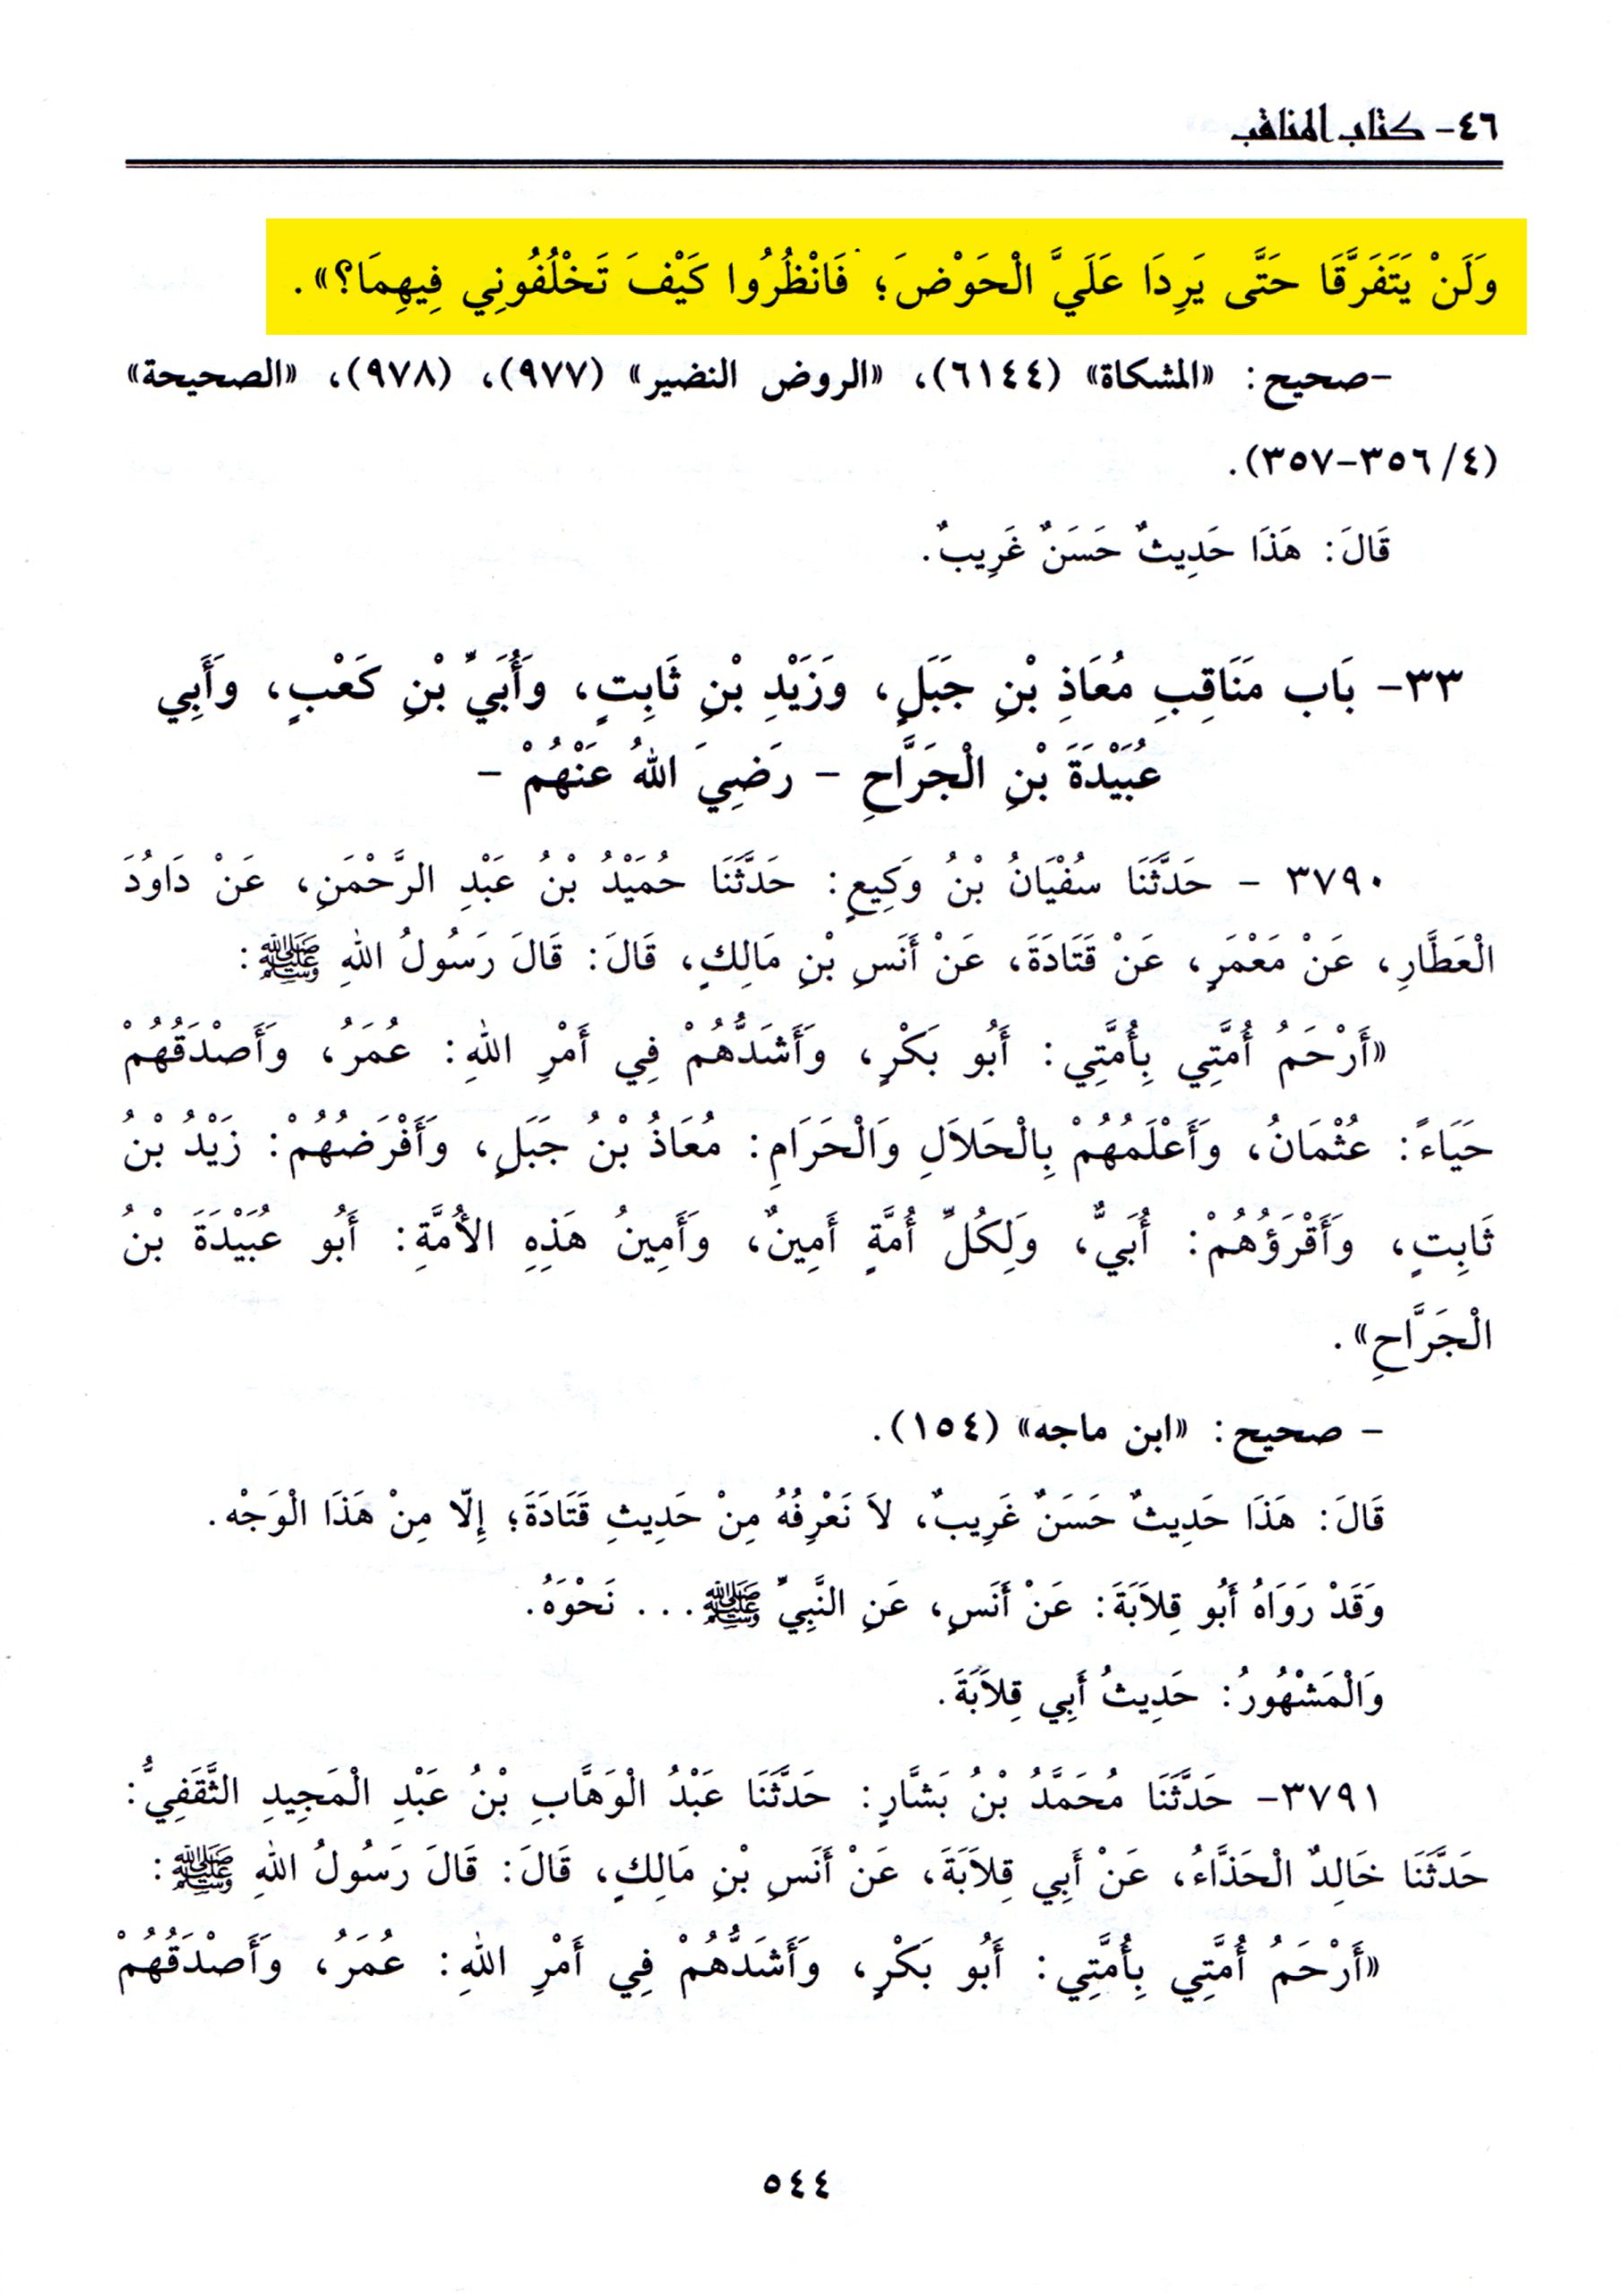 ٤٦- كتاب المناقب
وَلَنْ يَتَفَرَّقَا حَتَّى يَرِدَا عَلَيَّ الْحَوْضَ؛ فَانْظُرُوا كَيْفَ تَخْلُفُونِي فِيهِمَا؟».
-صحيح: «المشكاة» (٦١٤٤)، «الروض النضير» (٩٧٧)، (٩٧٨)، «الصحيحة»
(٤/ ٣٥٦-٣٥٧).
قَالَ: هَذَا حَدِيثٌ حَسَنٌ غَرِيبٌ.
٣٣- بَاب مَنَاقِبِ مُعَاذِ بْنِ جَبَلٍ، وَزَيْدِ بْنِ ثَابِتٍ، وَأُبَيِّ بْنِ كَعْبٍ، وَأَبِي
عُبَيْدَةَ بْنِ الْجَرَّاحِ - رَضِيَ اللهُ عَنْهُمْ -
٣٧٩٠ - حَدَّثَنَا سُفْيَانُ بْنُ وَكِيعٍ: حَدَّثَنَا حُمَيْدُ بْنُ عَبْدِ الرَّحْمَنِ، عَنْ دَاوُدَ
الْعَطَّارِ، عَنْ مَعْمَرٍ، عَنْ قَتَادَةَ، عَنْ أَنَسِ بْنِ مَالِكٍ، قَالَ: قَالَ رَسُولُ اللهِ ﷺ:
«أَرْحَمُ أُمَّتِي بِأُمَّتِي: أَبُو بَكْرٍ، وَأَشَدُّهُمْ فِي أَمْرِ اللهِ: عُمَرُ، وَأَصْدَقُهُمْ
حَيَاءً: عُثْمَانُ، وَأَعْلَمُهُمْ بِالْحَلاَلِ وَالْحَرَامِ: مُعَاذُ بْنُ جَبَلٍ، وَأَفْرَضُهُمْ: زَيْدُ بْنُ
ثَابِتٍ، وَأَقْرَؤُهُمْ: أُبَيٌّ، وَلِكُلِّ أُمَّةٍ أَمِينٌ، وَأَمِينُ هَذِهِ الأُمَّةِ: أَبُو عُبَيْدَةَ بْنُ
الْجَرَّاحِ».
- صحيح: «ابن ماجه» (١٥٤).
قَالَ: هَذَا حَدِيثٌ حَسَنٌ غَرِيبٌ، لاَ نَعْرِفُهُ مِنْ حَدِيثِ قَتَادَةَ؛ إِلّا مِنْ هَذَا الْوَجْه.
وَقَدْ رَوَاهُ أَبُو قِلاَبَةَ: عَنْ أَنَسٍ، عَنِ النَّبِيِّ ﷺ... نَحْوَهُ.
وَالْمَشْهُورُ: حَدِيثُ أَبِي قِلاَبَةَ.
٣٧٩١- حَدَّثَنَا مُحَمَّدُ بْنُ بَشَّارٍ: حَدَّثَنَا عَبْدُ الْوَهَّابِ بْنُ عَبْدِ الْمَجِيدِ الثَّقَفِيُّ:
حَدَّثَنَا خَالِدٌ الْحَذَّاءُ، عَنْ أَبِي قِلاَبَةَ، عَنْ أَنَسِ بْنِ مَالِكٍ، قَالَ: قَالَ رَسُولُ اللهِ ﷺ:
«أَرْحَمُ أُمَّتِي بِأُمَّتِي: أَبُو بَكْرٍ، وَأَشَدُّهُمْ فِي أَمْرِ اللهِ: عُمَرُ، وَأَصْدَقُهُمْ
٥٤٤